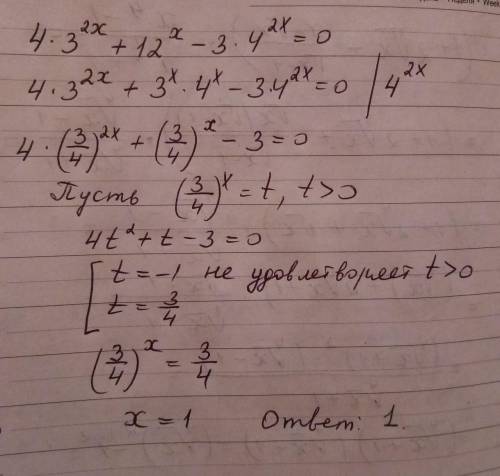 4 · 3^{2x} + 12^x − 3 · 4^{2x} = 0
4 · 3^{2x} + 3^x · 4^x − 3 · 4^{2x} = 0 | 4^{2x}
4 · (3/4)^{2x} + (3/4)^x − 3 = 0
Пусть (3/4)^x = t, t > 0
4t² + t − 3 = 0
[ t = −1 не удовлетворяет t > 0
t = 3/4
(3/4)^x = 3/4
x = 1 Ответ: 1.